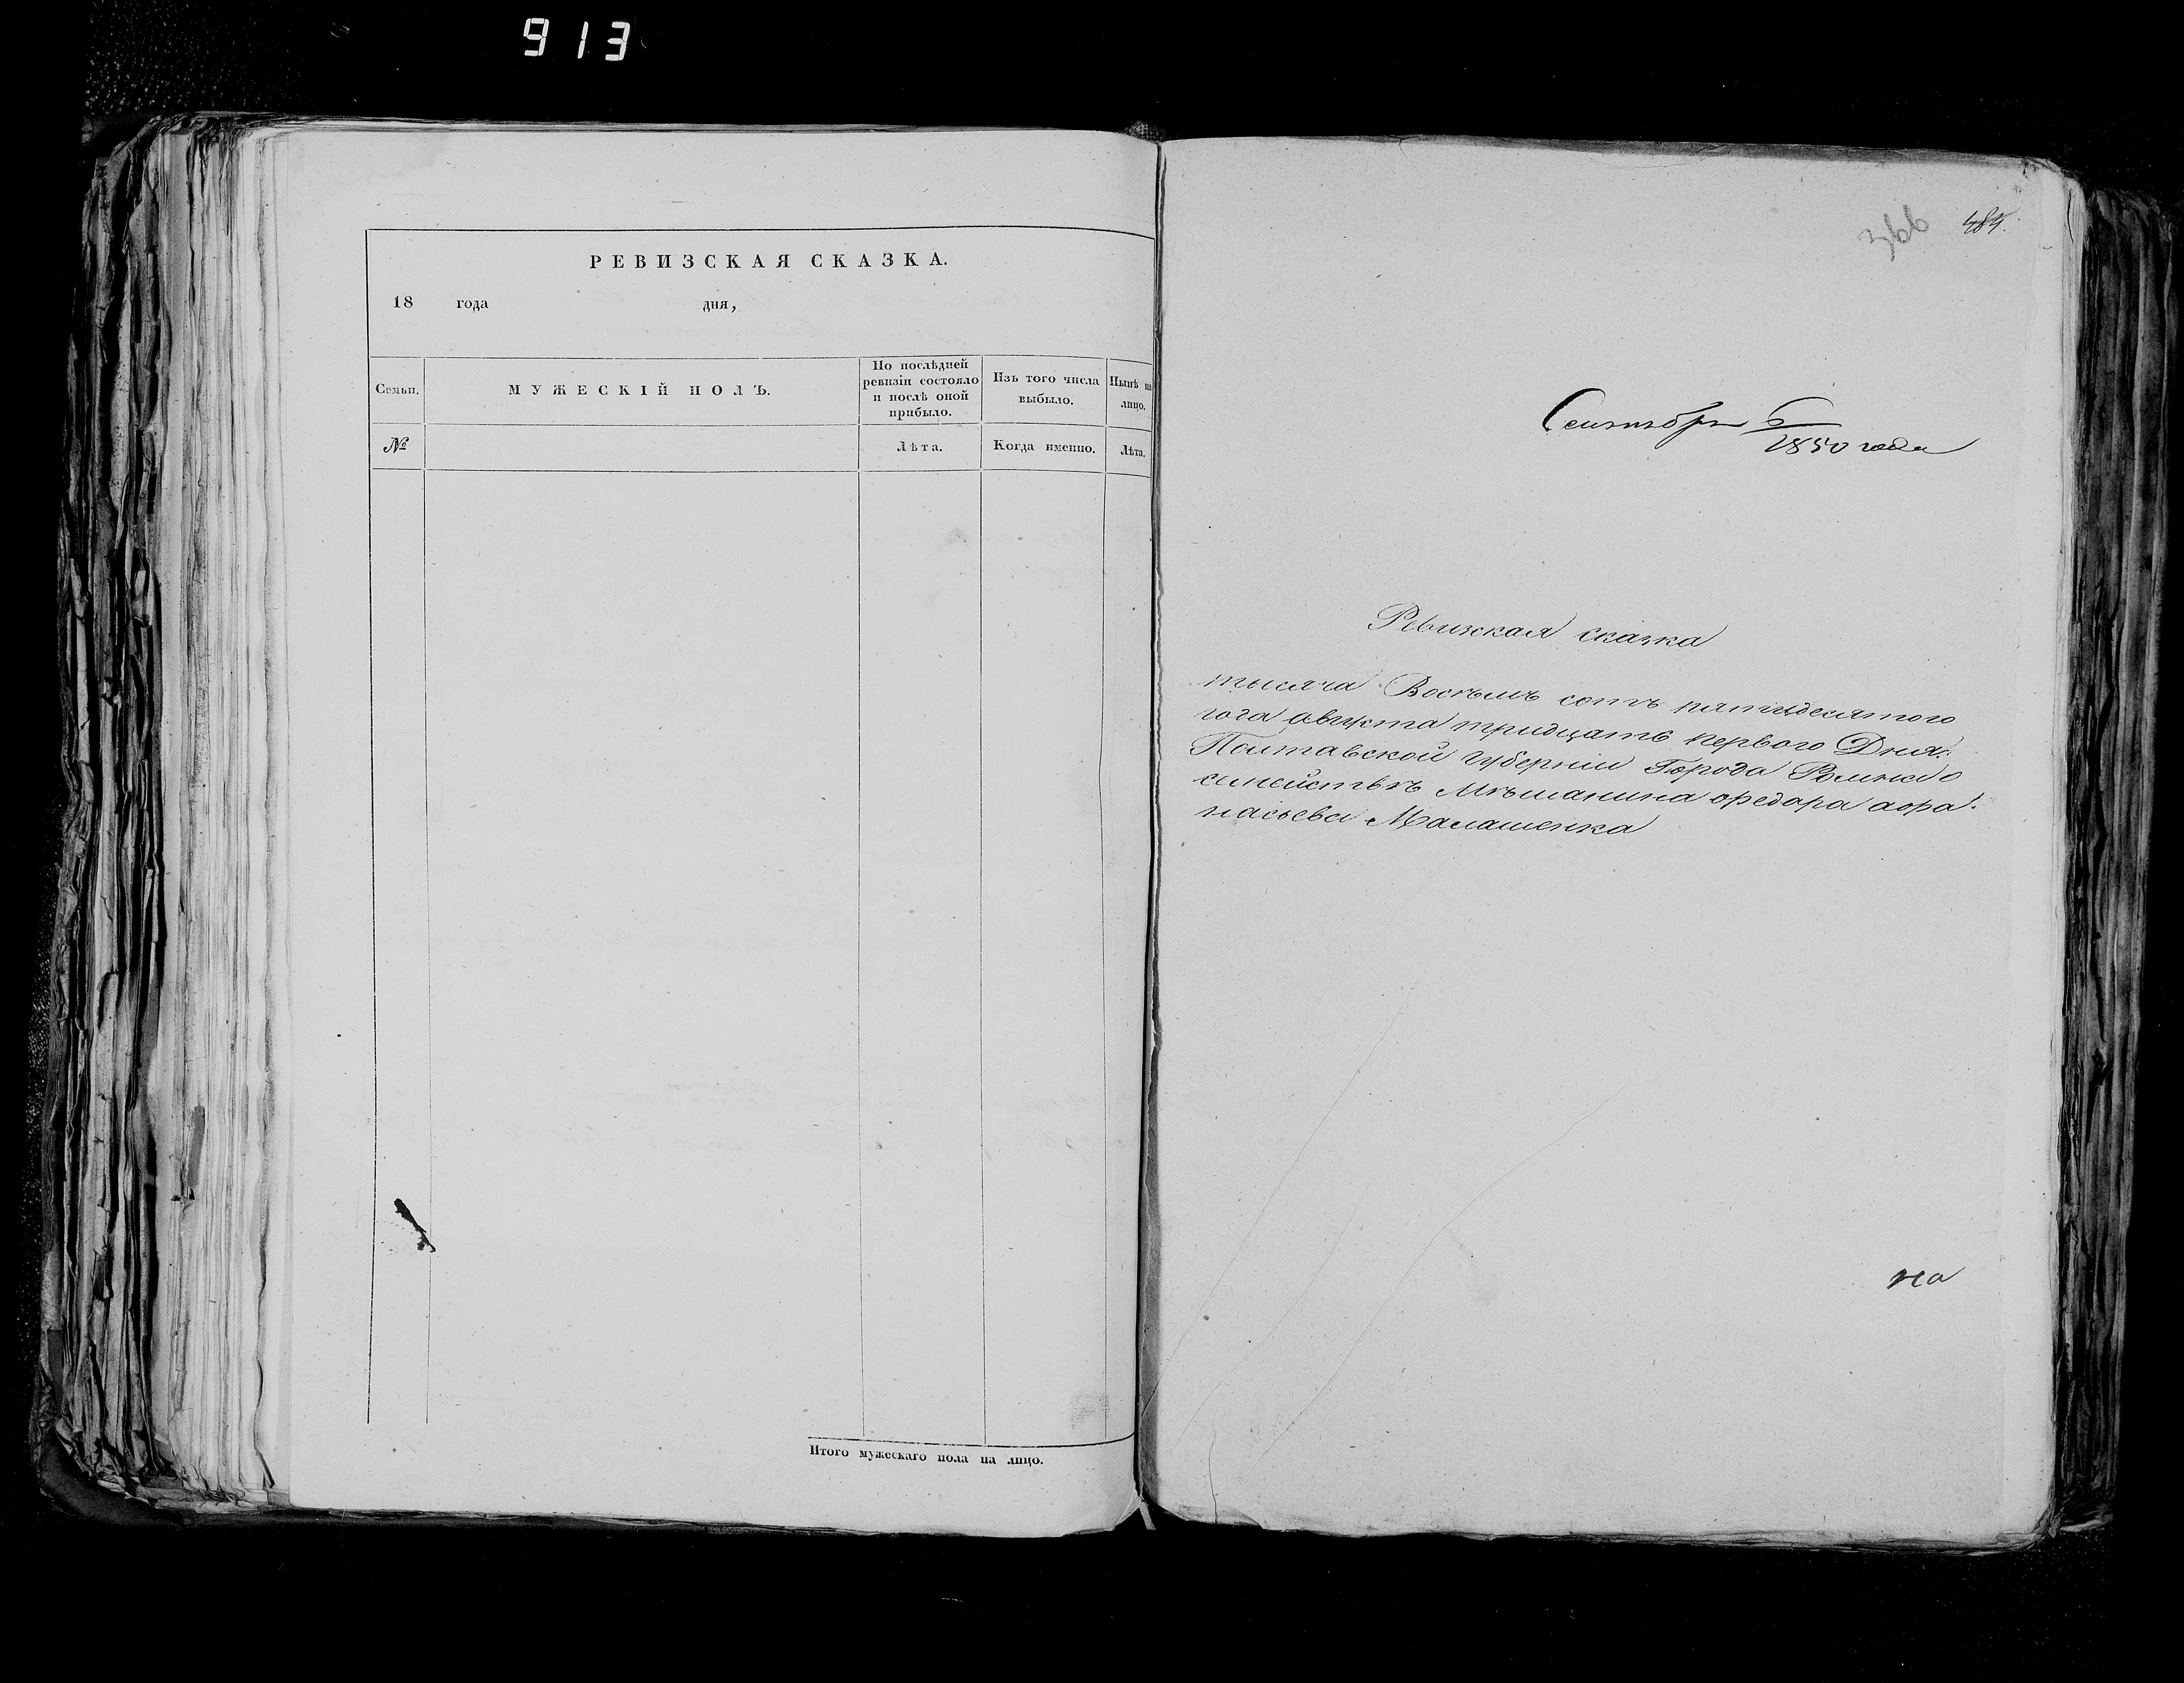 913
РЕВИЗСКАЯ СКАЗКА.
18 года дня,
Семьи.
МУЖЕСКІЙ ПОЛЪ.
По послѣдней
ревизіи состояло
и послѣ оной
прибыло.
Изъ того числа
выбыло.
Нынѣ на
лицо.
№
Лѣта.
Когда именно.
Лѣта.
Итого мужескаго пола на лицо.
366 484.
Сентября 6
1850 года
Ревизкая сказка
тысяча Восѣмъ сотъ пятидесятого
года августа тридцать первого Дня.
Полтавской губерніи Города Роменъ о
семействѣ Мѣщанина Федора афа-
насьева Малашенка
на